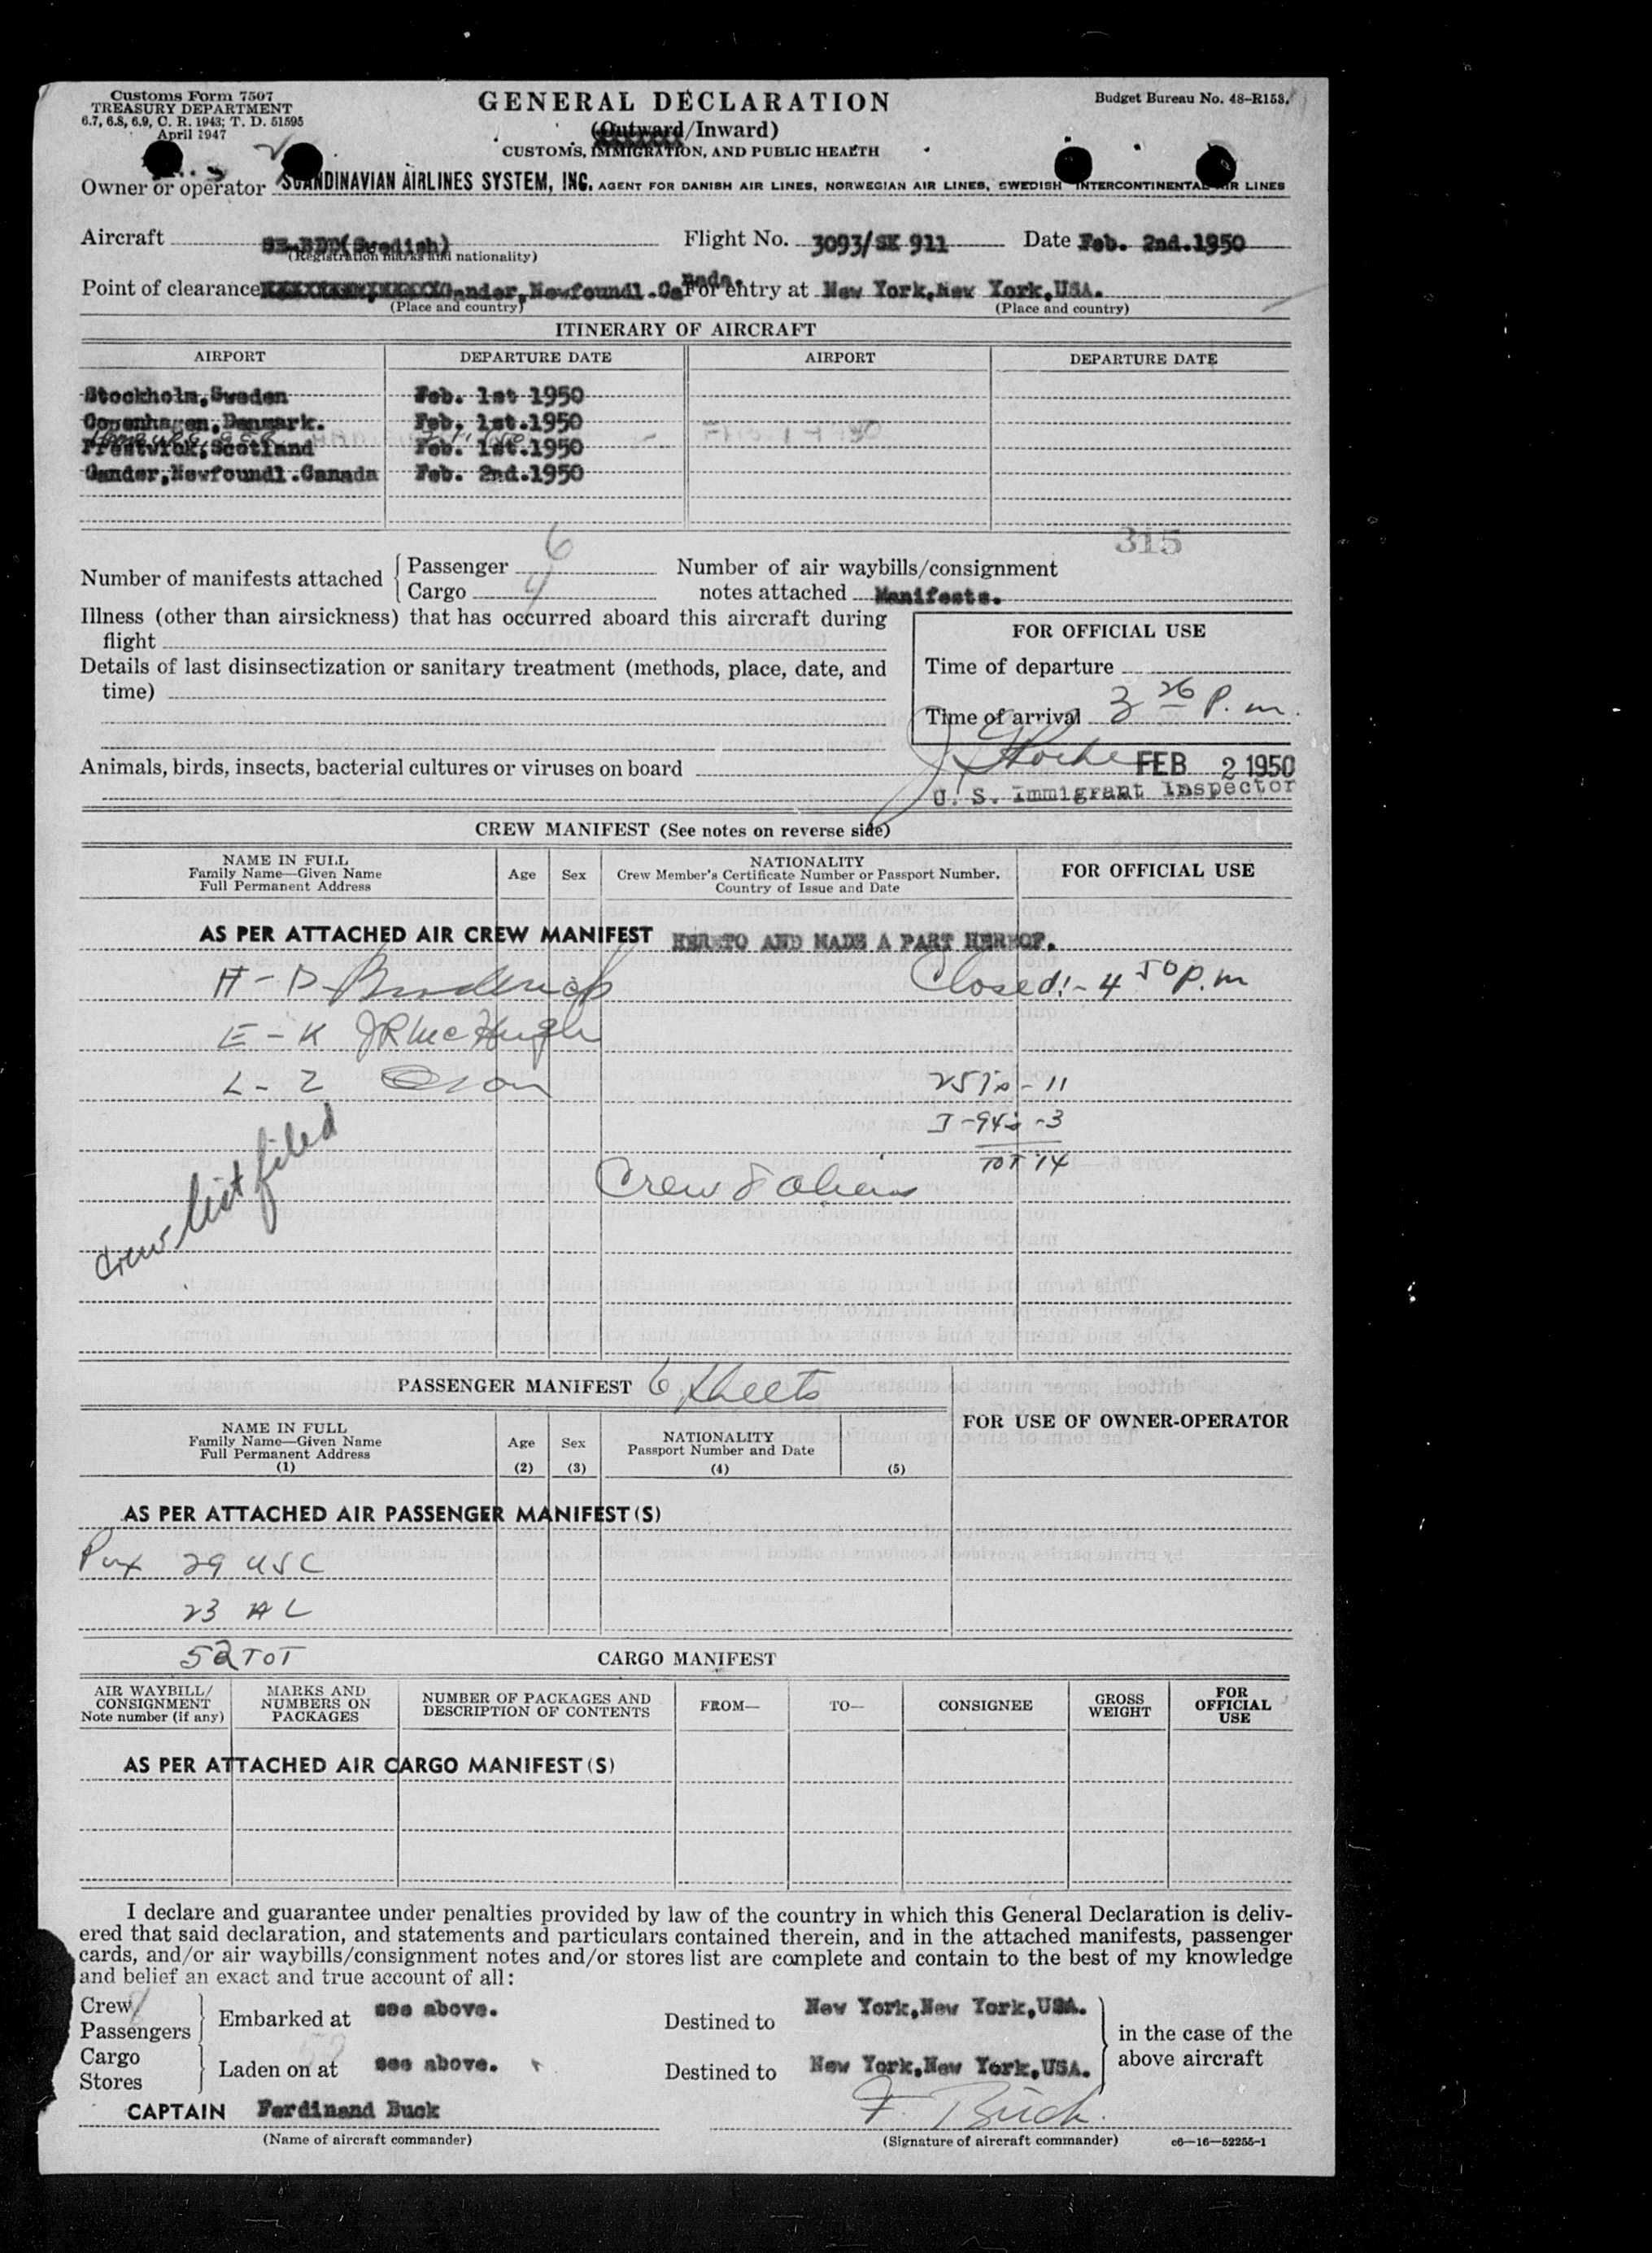 Customs Form 7507
TREASURY DEPARTMENT
6.7, 6.8, 6.9, C. R. 1943; T. D. 51595
April 1947
GENERAL DECLARATION
(Outward/Inward)
CUSTOMS, IMMIGRATION, AND PUBLIC HEALTH
Budget Bureau No. 48-R153.
Owner or operator SCANDINAVIAN AIRLINES SYSTEM, INC. AGENT FOR DANISH AIR LINES, NORWEGIAN AIR LINES, SWEDISH INTERCONTINENTAL AIR LINES
Aircraft (Swedish) Flight No. 3093/SK 911 Date Feb. 2nd.1950
(Registration marks and nationality)
Point of clearance Gander,Newfoundl.Canada. For entry at New York,New York,USA.
(Place and country) (Place and country)
ITINERARY OF AIRCRAFT
AIRPORT DEPARTURE DATE AIRPORT DEPARTURE DATE
Stockholm,Sweden Feb. 1st 1950
Copenhagen,Denmark. Feb. 1st.1950
Prestwick,Scotland Feb. 1st.1950
Gander,Newfoundl.Canada Feb. 2nd.1950
315
Number of manifests attached Passenger 6 Number of air waybills/consignment
Cargo 4 notes attached Manifests.
Illness (other than airsickness) that has occurred aboard this aircraft during
flight
Details of last disinsectization or sanitary treatment (methods, place, date, and
time)
FOR OFFICIAL USE
Time of departure
Time of arrival 3 26 P.m.
Animals, birds, insects, bacterial cultures or viruses on board
FEB 2 1950
U. S. Immigrant Inspector
CREW MANIFEST (See notes on reverse side)
NAME IN FULL
Family Name—Given Name
Full Permanent Address
Age Sex
NATIONALITY
Crew Member's Certificate Number or Passport Number,
Country of Issue and Date
FOR OFFICIAL USE
AS PER ATTACHED AIR CREW MANIFEST HERETO AND MADE A PART HEREOF.
A - D Broderick Closed:- 4 50 p.m
E - K JR McHugh
L - Z
257s - 11
I-94s -3
TOT 14
Crew 8 aliens
Crew list filed
PASSENGER MANIFEST 6 sheets
NAME IN FULL
Family Name—Given Name
Full Permanent Address
(1)
Age
(2)
Sex
(3)
NATIONALITY
Passport Number and Date
(4)
(5)
FOR USE OF OWNER-OPERATOR
AS PER ATTACHED AIR PASSENGER MANIFEST(S)
29 USC
23 AL
52 TOT
CARGO MANIFEST
AIR WAYBILL/
CONSIGNMENT
Note number (if any)
MARKS AND
NUMBERS ON
PACKAGES
NUMBER OF PACKAGES AND
DESCRIPTION OF CONTENTS
FROM—
TO—
CONSIGNEE
GROSS
WEIGHT
FOR
OFFICIAL
USE
AS PER ATTACHED AIR CARGO MANIFEST(S)
I declare and guarantee under penalties provided by law of the country in which this General Declaration is deliv-
ered that said declaration, and statements and particulars contained therein, and in the attached manifests, passenger
cards, and/or air waybills/consignment notes and/or stores list are complete and contain to the best of my knowledge
and belief an exact and true account of all:
Crew 8
Passengers
Embarked at see above. Destined to New York,New York,USA.
Cargo
Stores
Laden on at see above. Destined to New York,New York,USA.
in the case of the
above aircraft
CAPTAIN Ferdinand Buck F. Buck.
(Name of aircraft commander) (Signature of aircraft commander) c6—16—52255-1